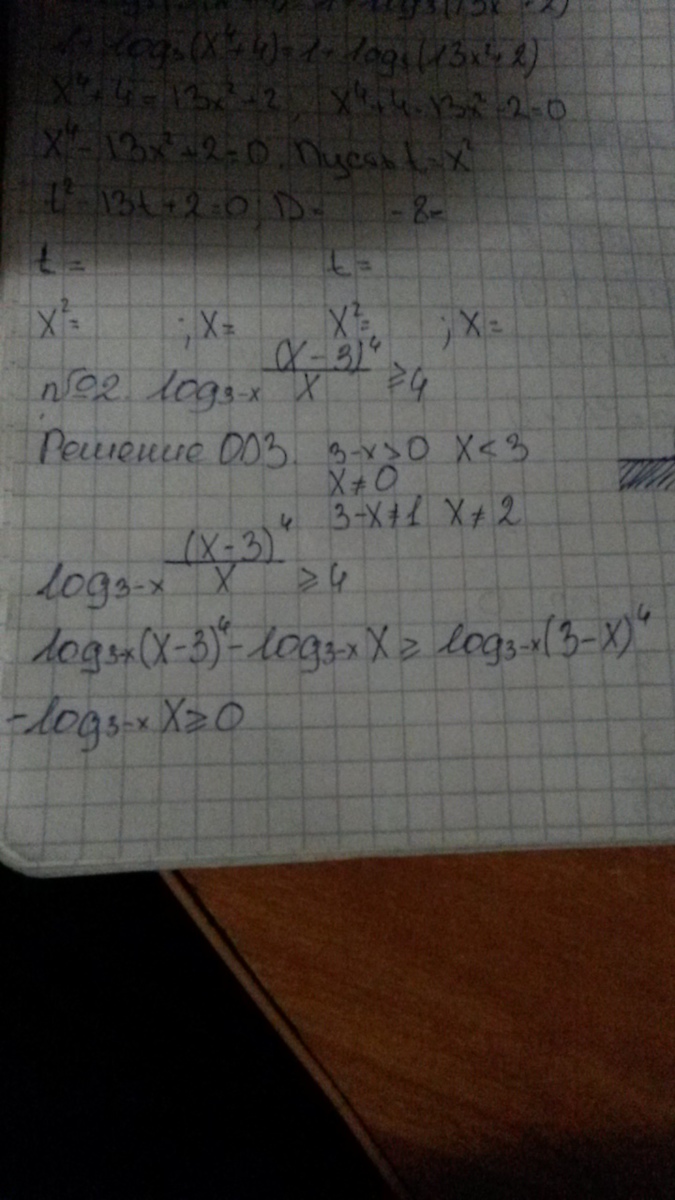 1+log₃(x⁴+4)=1+log₃(13x²+2)
x⁴+4=13x²+2, x⁴+4-13x²-2=0
x⁴-13x²+2=0. Пусть t=x²
t²-13t+2=0; D= -8=
t= t=
x²= ; x= x²= ; x=
№2. log₃₋ₓ (x-3)⁴/x ≥4
Решение ОДЗ. 3-x>0 x<3
x≠0
3-x≠1 x≠2
log₃₋ₓ (x-3)⁴/x ≥4
log₃₋ₓ(x-3)⁴-log₃₋ₓ x ≥ log₃₋ₓ(3-x)⁴
-log₃₋ₓ x≥0